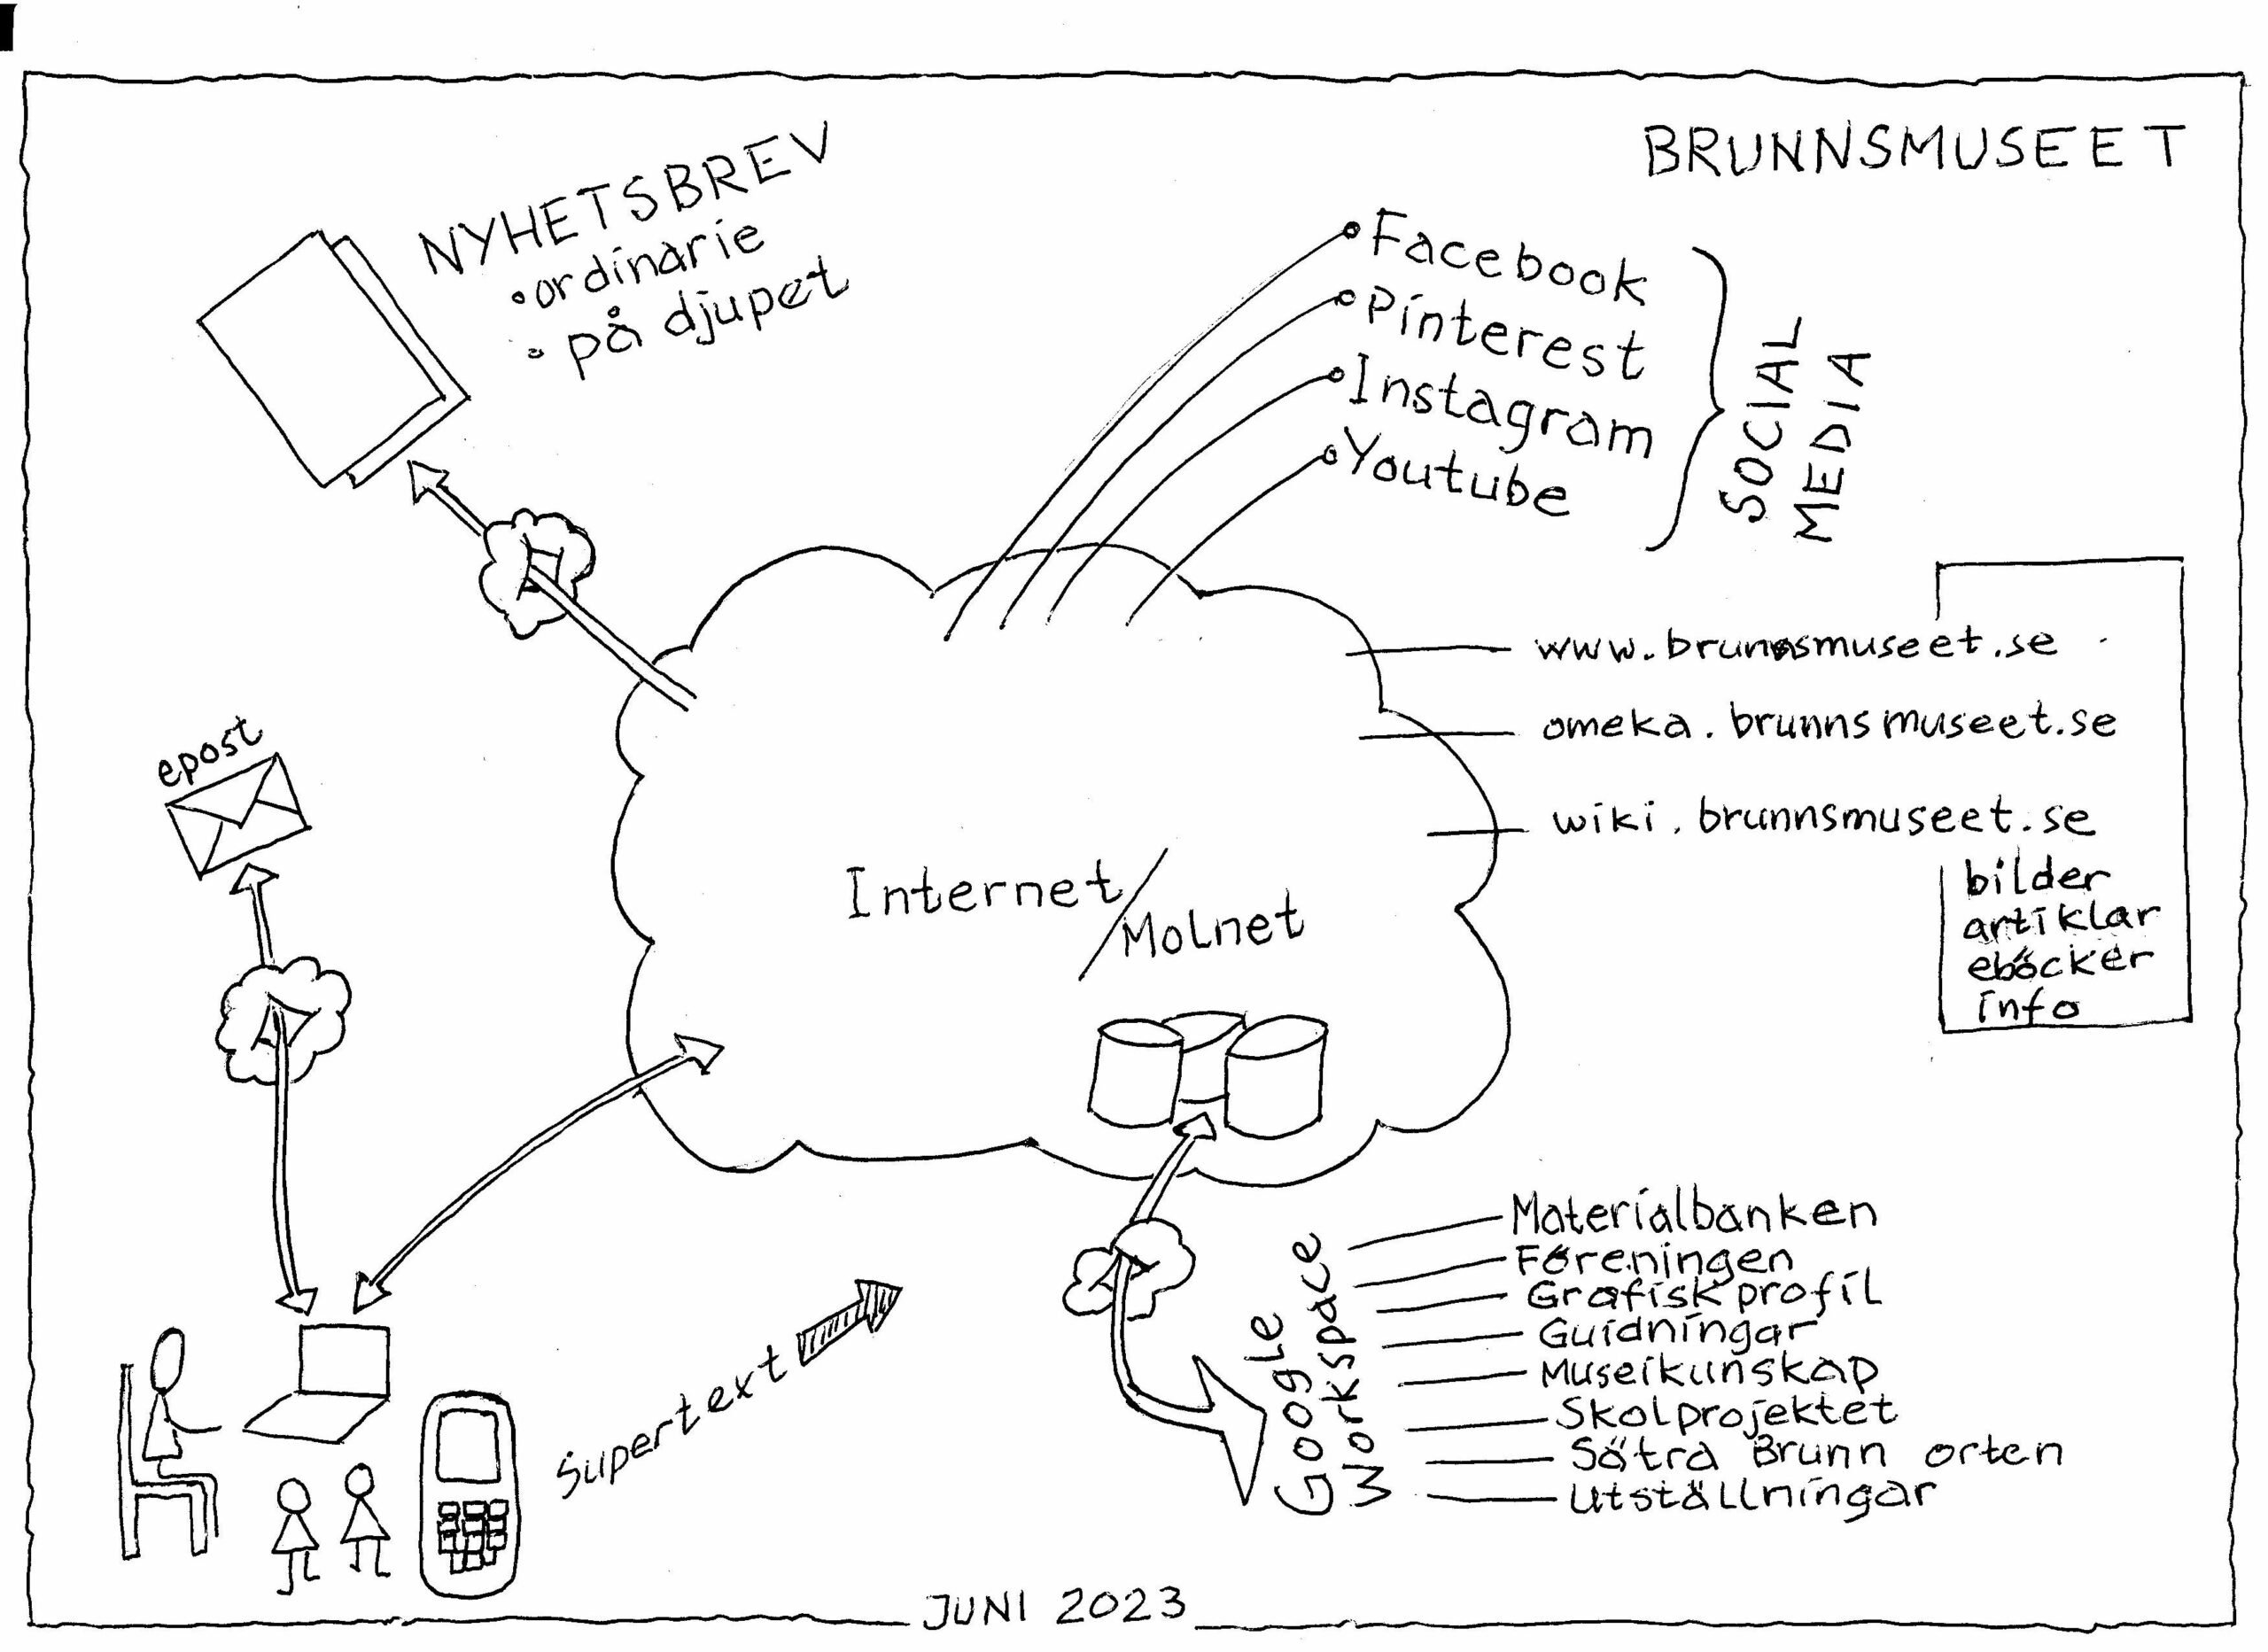 BRUNNSMUSEET
NYHETSBREV
• ordinarie
• på djupet
Facebook
Pinterest
Instagram
Youtube
SOCIAL
MEDIA
www.brunnsmuseet.se
omeka.brunnsmuseet.se
wiki.brunnsmuseet.se
bilder
artiklar
eböcker
info
epost
Internet/
Molnet
Supertext
Google
Workspace
Materialbanken
Föreningen
Grafisk profil
Guidningar
Museikunskap
Skolprojektet
Sätra Brunn orten
Utställningar
JUNI 2023